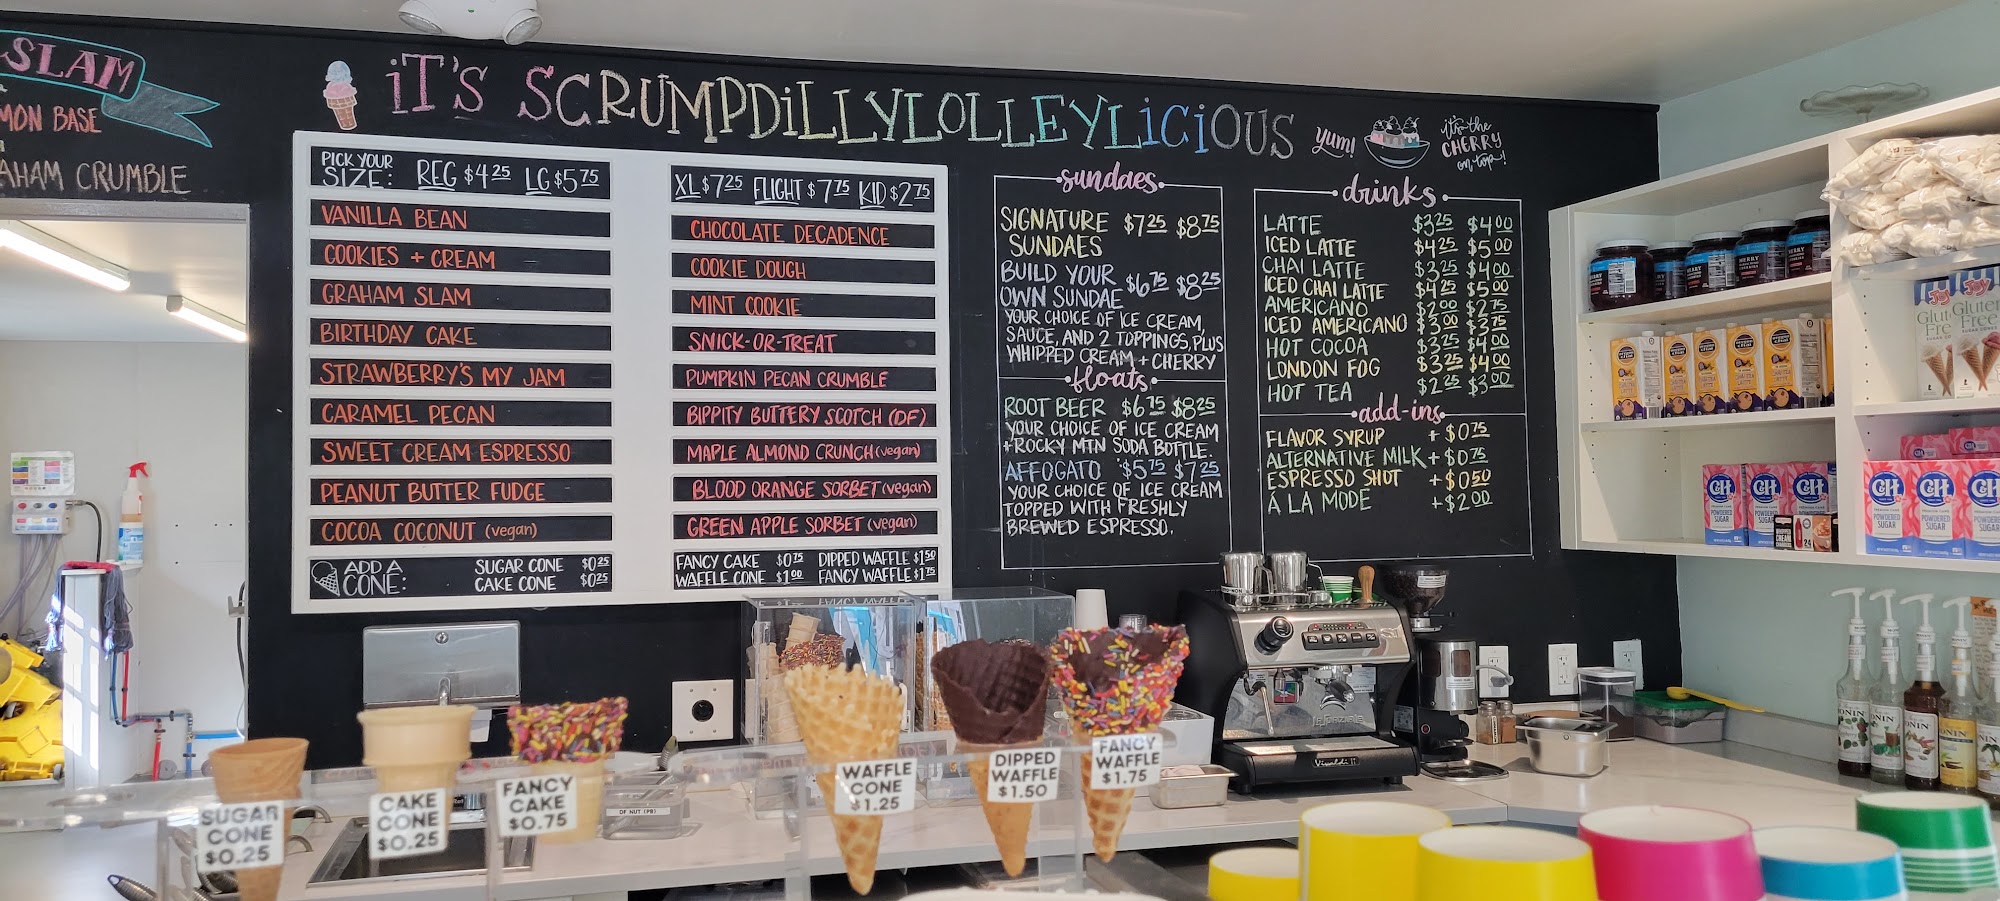 SLAM
MON BASE
AHAM CRUMBLE
iT'S SCRUMPDiLLYLOLLEYLiCiOUS
yum!
it's the
CHERRY
on top!
PICK YOUR
SIZE: REG $4.25 LG $5.75
VANILLA BEAN
COOKIES + CREAM
GRAHAM SLAM
BIRTHDAY CAKE
STRAWBERRY'S MY JAM
CARAMEL PECAN
SWEET CREAM ESPRESSO
PEANUT BUTTER FUDGE
COCOA COCONUT (vegan)
ADD A
CONE:
SUGAR CONE $0.25
CAKE CONE $0.25
XL $7.25 FLIGHT $7.75 KID $2.75
CHOCOLATE DECADENCE
COOKIE DOUGH
MINT COOKIE
SNICK-OR-TREAT
PUMPKIN PECAN CRUMBLE
BIPPITY BUTTERY SCOTCH (DF)
MAPLE ALMOND CRUNCH (vegan)
BLOOD ORANGE SORBET (vegan)
GREEN APPLE SORBET (vegan)
FANCY CAKE $0.75 DIPPED WAFFLE $1.50
WAFFLE CONE $1.00 FANCY WAFFLE $1.75
sundaes
SIGNATURE $7.25 $8.75
SUNDAES
BUILD YOUR
OWN SUNDAE $6.75 $8.25
YOUR CHOICE OF ICE CREAM,
SAUCE, AND 2 TOPPINGS, PLUS
WHIPPED CREAM + CHERRY
floats
ROOT BEER $6.75 $8.25
YOUR CHOICE OF ICE CREAM
+ ROCKY MTN SODA BOTTLE.
AFFOGATO $5.75 $7.25
YOUR CHOICE OF ICE CREAM
TOPPED WITH FRESHLY
BREWED ESPRESSO.
drinks
LATTE $3.25 $4.00
ICED LATTE $4.25 $5.00
CHAI LATTE $3.25 $4.00
ICED CHAI LATTE $4.25 $5.00
AMERICANO $2.00 $2.75
ICED AMERICANO $3.00 $3.75
HOT COCOA $3.25 $4.00
LONDON FOG $3.25 $4.00
HOT TEA $2.25 $3.00
add-ins
FLAVOR SYRUP + $0.75
ALTERNATIVE MILK + $0.75
ESPRESSO SHOT + $0.50
À LA MODE + $2.00
Joy
Gluten
Free
C&H
POWDERED
SUGAR
C&H
C&H
C&H
POWDERED
SUGAR
C&H
C&H
SUGAR
CONE
$0.25
CAKE
CONE
$0.25
FANCY
CAKE
$0.75
WAFFLE
CONE
$1.25
DIPPED
WAFFLE
$1.50
FANCY
WAFFLE
$1.75
DF NUT (PB)
Vivaldi II
MONIN